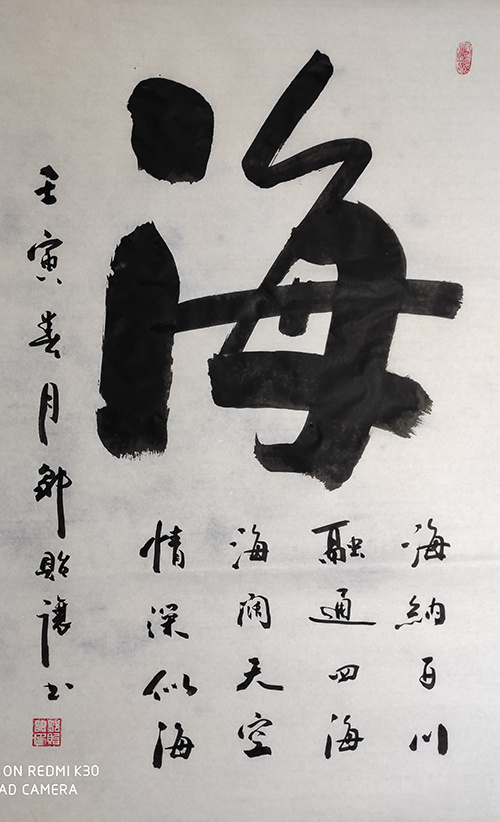 海
海納百川
融通四海
海阔天空
情深似海
壬寅春月鄒貽讓书
ON REDMI K30
AD CAMERA